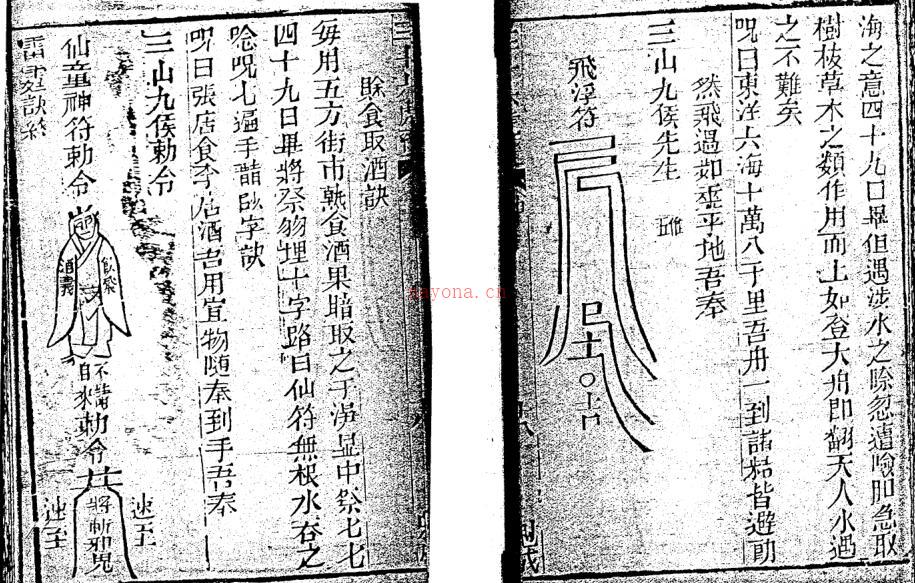 海之意四十九日畢但遇涉水之際忽遭險阻急取
樹枝草木之類作用而上如登大舟即翻天人水過
之不難矣
咒曰東洋大海十萬八千里吾舟一到諸 皆避
然飛過如 平地吾奉
三山九侯先生
飛浮符
賒食取酒訣
每用五方街市熟食酒果暗取之于 中祭七七
四十九日畢將祭物埋十字路口仙符無根水吞之
唸咒七遍手 字訣
咒曰張店食李店酒吾用宜物隨奉到手吾奉
三山九侯勅令
仙童神符勅令
不請
自來
勅令
將斬邪鬼
速至
速至
訣終
nayona.cn